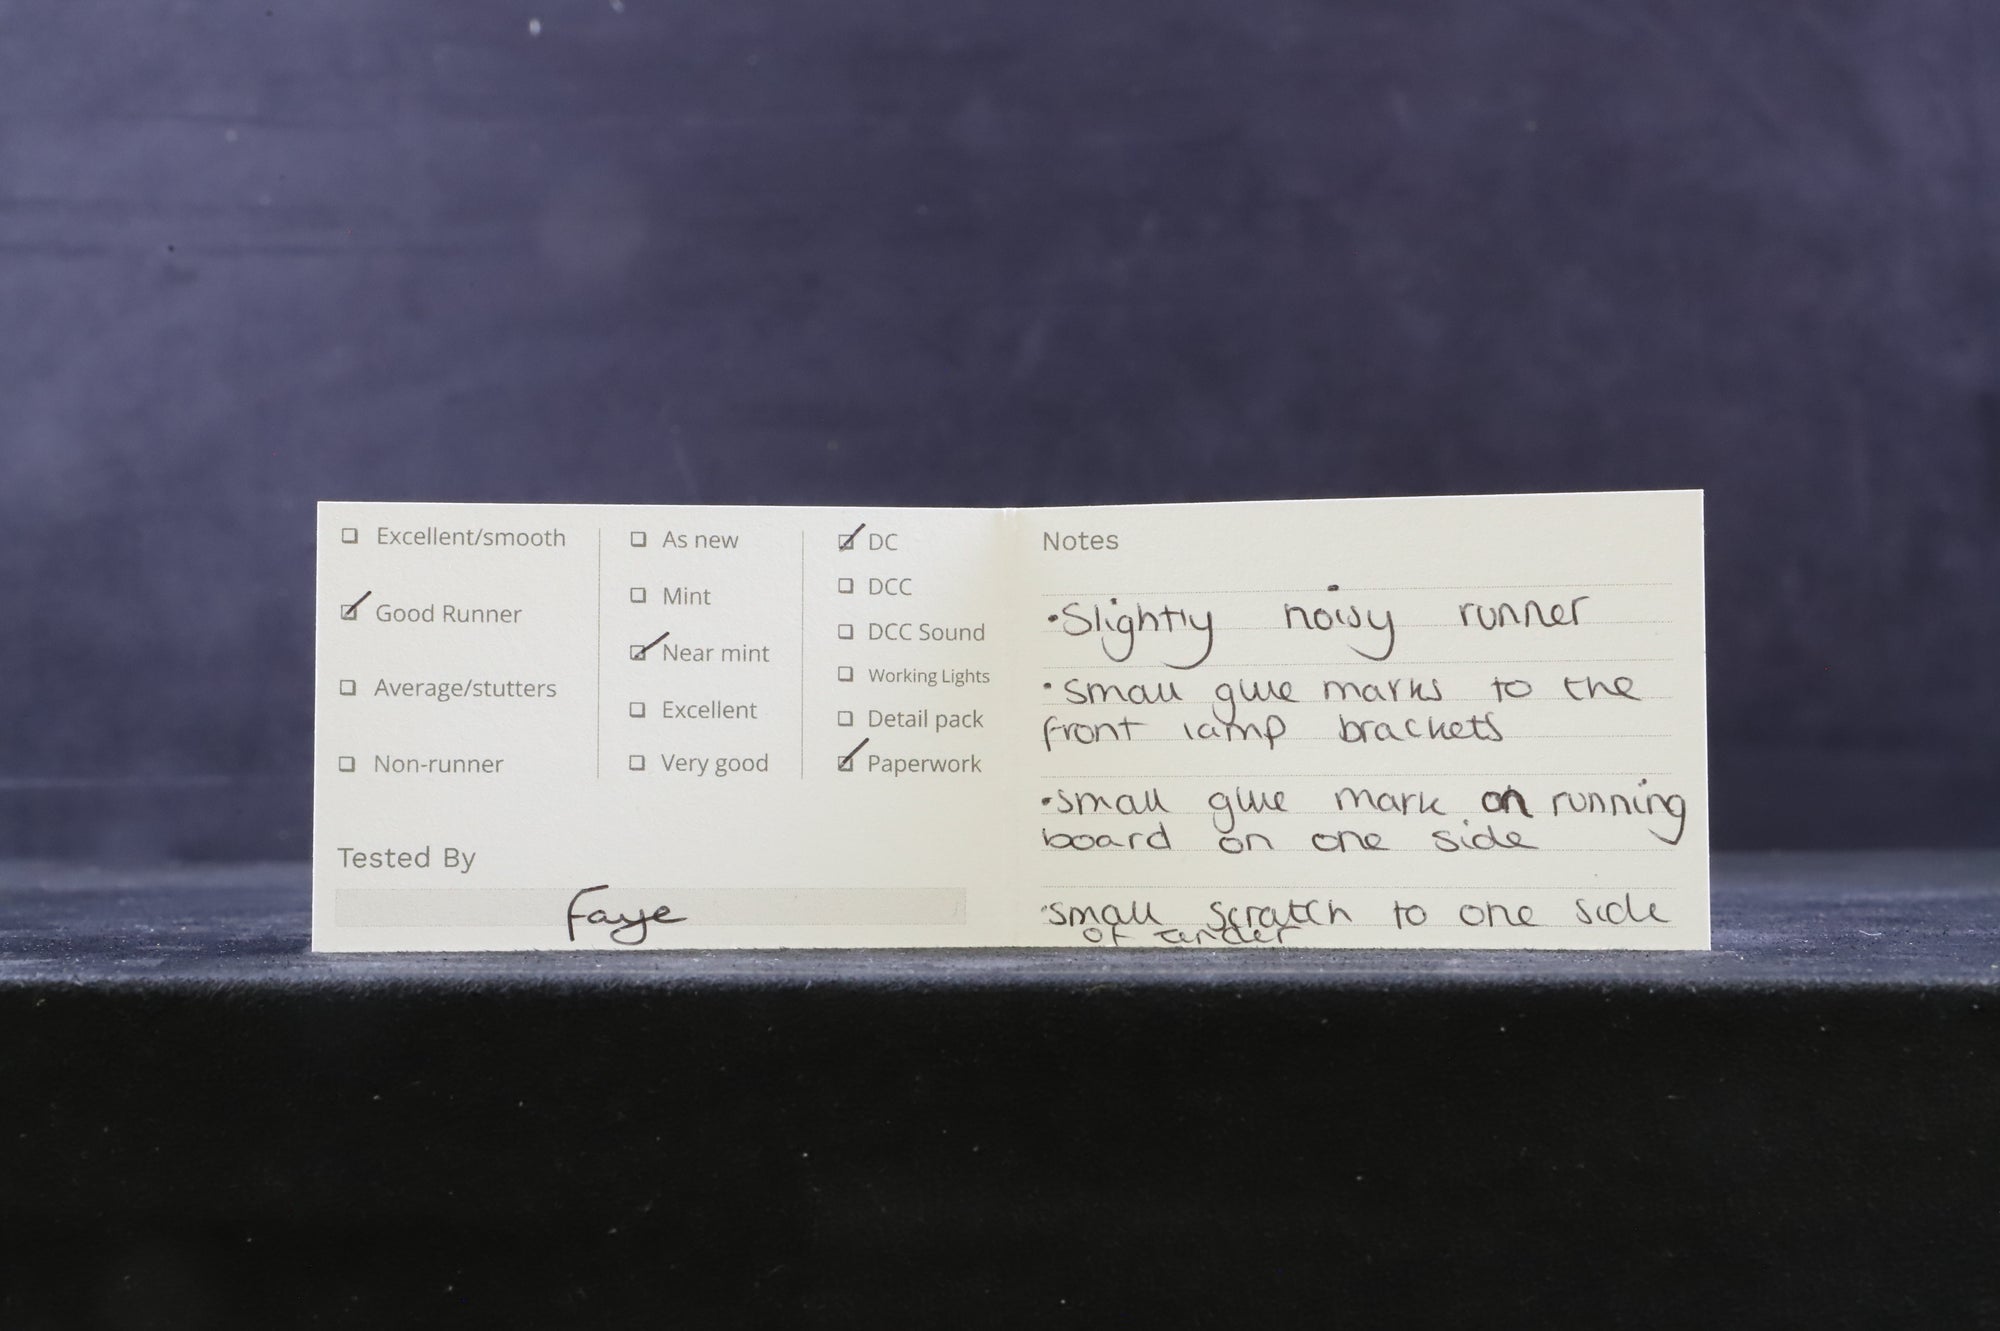 ☐ Excellent/smooth
☑ Good Runner
☐ Average/stutters
☐ Non-runner
☐ As new
☐ Mint
☑ Near mint
☐ Excellent
☐ Very good
☑ DC
☐ DCC
☐ DCC Sound
☐ Working Lights
☐ Detail pack
☑ Paperwork
Tested By
Faye
Notes
• Slightly noisy runner
• small glue marks to the
front lamp brackets
• small glue mark on running
board on one side
• small scratch to one side
of tender